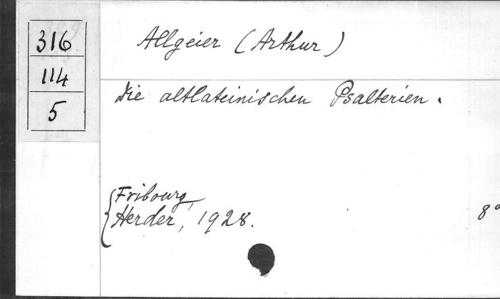 316
114
5
Allgeier (Arthur)
Die altlateinischen Psalterien.
Fribourg,
Herder, 1928.
8°